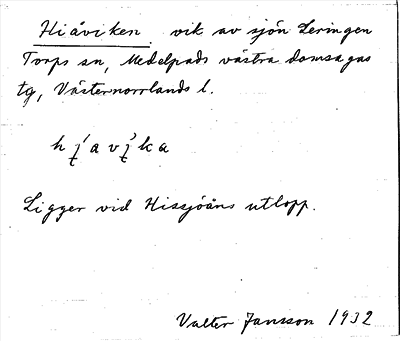 Hiåviken vik av sjön Leringen
Torps sn, Medelpads västra domsagas
tg, Västernorrlands l.
Ligger vid Hissjöåns utlopp.
Valter Jansson 1932